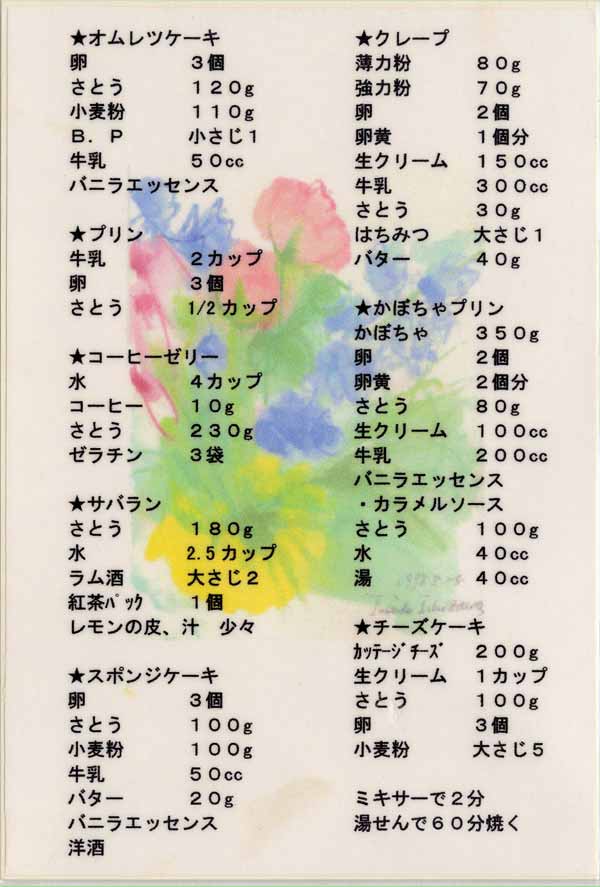 ★オムレツケーキ
卵　３個
さとう　１２０g
小麦粉　１１０g
Ｂ．Ｐ　小さじ１
牛乳　５０cc
バニラエッセンス
★プリン
牛乳　２カップ
卵　３個
さとう　1/2カップ
★コーヒーゼリー
水　４カップ
コーヒー　１０g
さとう　２３０g
ゼラチン　３袋
★サバラン
さとう　１８０g
水　2.5カップ
ラム酒　大さじ２
紅茶ﾊﾟｯｸ　１個
レモンの皮、汁　少々
★スポンジケーキ
卵　３個
さとう　１００g
小麦粉　１００g
牛乳　５０cc
バター　２０g
バニラエッセンス
洋酒
★クレープ
薄力粉　８０g
強力粉　７０g
卵　２個
卵黄　１個分
生クリーム　１５０cc
牛乳　３００cc
さとう　３０g
はちみつ　大さじ１
バター　４０g
★かぼちゃプリン
かぼちゃ　３５０g
卵　２個
卵黄　２個分
さとう　８０g
生クリーム　１００cc
牛乳　２００cc
バニラエッセンス
・カラメルソース
さとう　１００g
水　４０cc
湯　４０cc
★チーズケーキ
ｶｯﾃｰｼﾞﾁｰｽﾞ　２００g
生クリーム　１カップ
さとう　１００g
卵　３個
小麦粉　大さじ５
ミキサーで２分
湯せんで６０分焼く